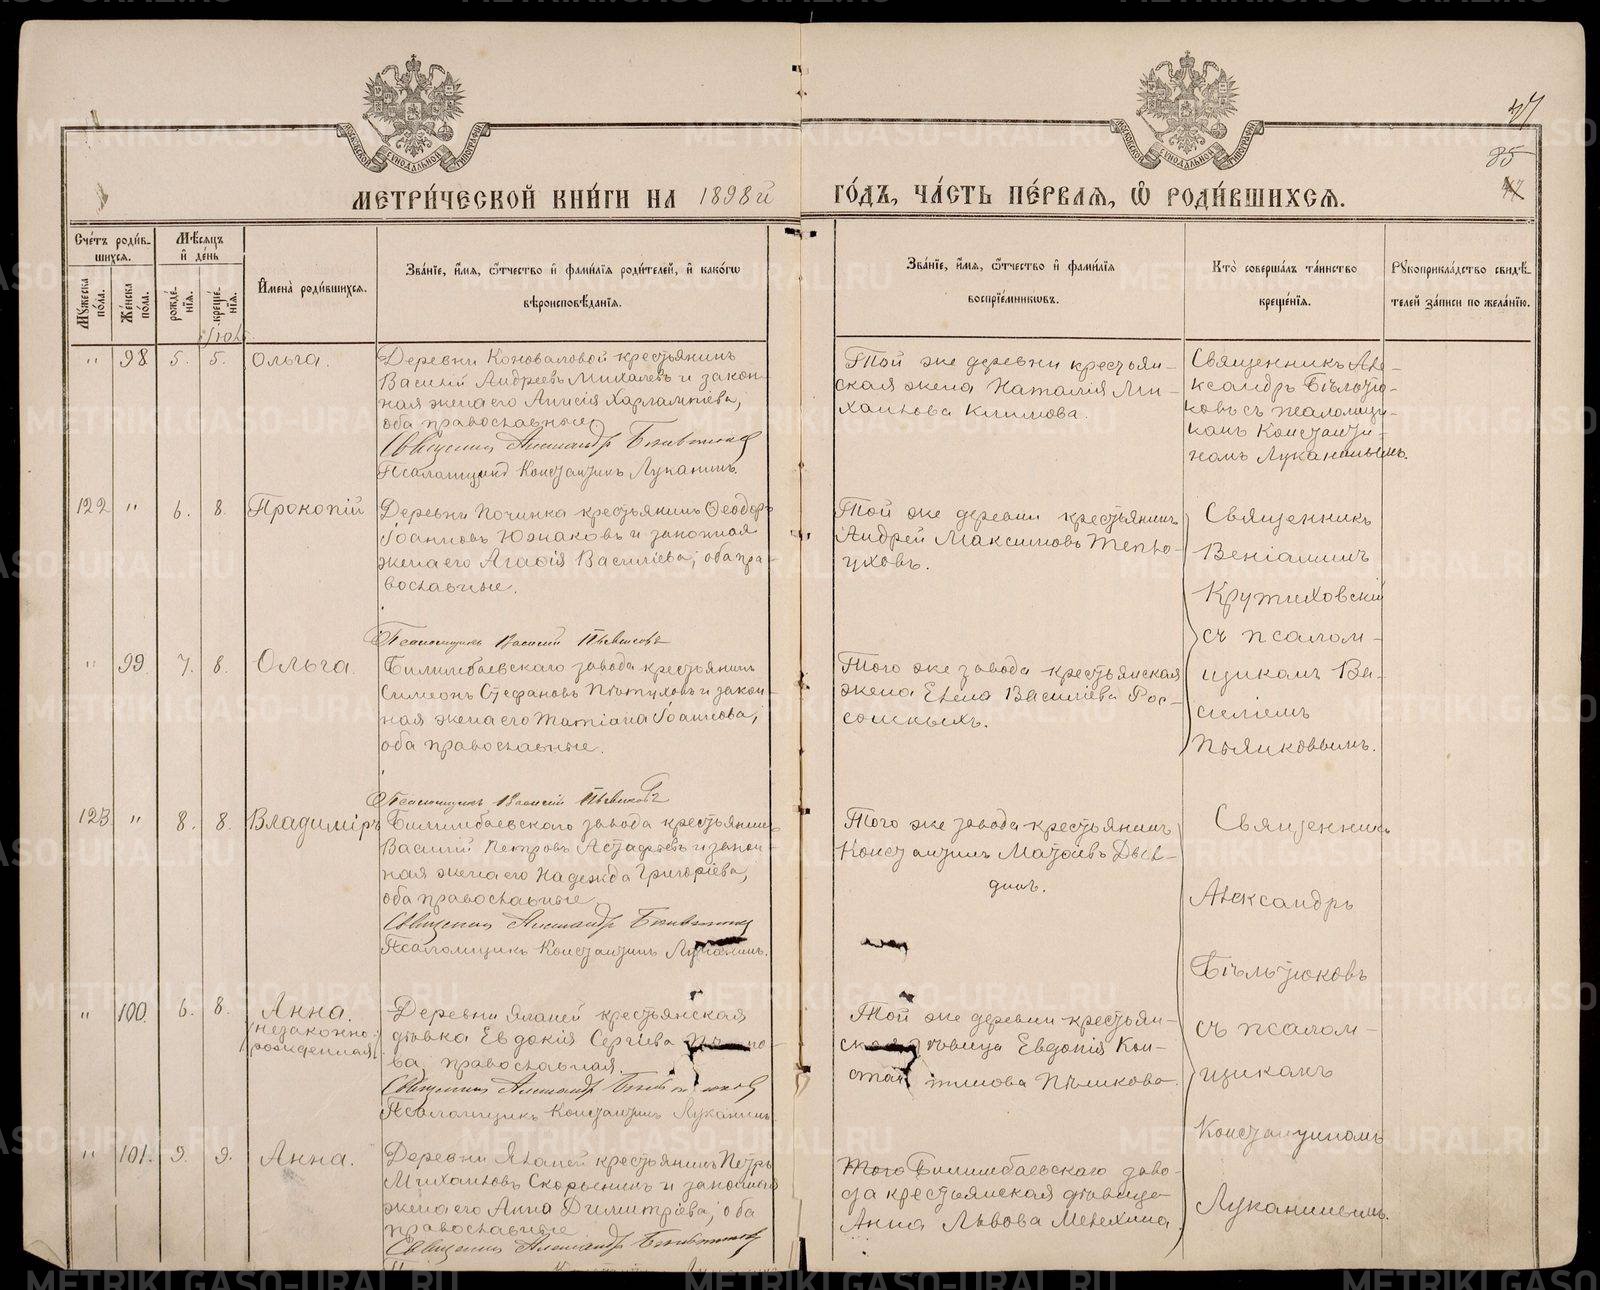 47
85
МЕТРИ́ЧЕСКОЙ КНИ́ГИ НА 1898й ГО́ДЪ, ЧА́СТЬ ПЕ́РВАЯ, Ѽ РОДИ́ВШИХСЯ.
Сче́тъ роди́вшихся.
Мѣсяцъ и де́нь
Мꙋжеска по́ла.
Же́нска по́ла.
рожде́нїя.
креще́нїя.
Имена̀ роди́вшихся.
Зва́нїе, и́мя, ѻ҆́тчество и҆ фами́лїя роди́телей, и҆ како́гѡ вѣроисповѣ́данїя.
Зва́нїе, и́мя, ѻ҆́тчество и҆ фами́лїя воспрїе́мниковъ.
Кто̀ соверша́лъ та́инство креще́нїя.
Рꙋкоприкла́дство свидѣ́телей за́писи по жела́нїю.
Іюль
" 98 5. 5. Ольга.
Деревни Коноваловой крестьянинъ
Василій Андреевъ Михалевъ и закон-
ная жена его Анисія Харлампіева,
оба православные.
Священникъ Александръ Бѣльтюковъ
Псаломщикъ Константинъ Луканинъ.
Той же деревни крестьян-
ская жена Наталія Ми-
хаилова Климова.
Священникъ Але-
ксандръ Бѣльтю-
ковъ съ псаломщи-
комъ Константи-
номъ Луканинымъ.
122 " 6. 8. Прокопій
Деревни Починка крестьянинъ Ѳеодоръ
Іоанновъ Южаковъ и законная
жена его Агаѳія Василіева; оба пра-
вославные.
Псаломщикъ Василій Пьянковъ
Той же деревни крестьянинъ
Андрей Максимовъ Тепло-
уховъ.
Священникъ
Веніаминъ
Крутиховскій
съ псалом-
щикомъ Ва-
силіемъ
Пьянковымъ.
" 99 7. 8. Ольга.
Билимбаевскаго завода крестьянинъ
Симеонъ Стефановъ Пѣтуховъ и закон-
ная жена его Татіана Іоаннова;
оба православные.
Псаломщикъ Василій Пьянковъ
Того же завода крестьянская
жена Елена Василіева Рос-
сомскыхъ.
123 " 8. 8. Владиміръ
Билимбаевского завода крестьянинъ
Василій Петровъ Астафьевъ и закон-
ная жена его Надежда Григоріева,
оба православные
Священникъ Александръ Бѣльтюковъ
Псаломщикъ Константинъ Луканинъ.
Того же завода крестьянинъ
Константинъ Матѳіевъ Дьяв-
динъ.
Священникъ
Александръ
Бѣльтюковъ
съ псалом-
щикомъ
Константиномъ
Луканинымъ.
" 100. 6. 8. Анна.
(незаконно-
рожденная)
Деревни Яланей крестьянская
дѣвка Евдокія Сергіева
ва православная.
Священникъ Александръ Бѣльтюковъ
Псаломщикъ Константинъ Луканинъ
Той же деревни крестьян-
ская дѣвица Евдокія Кон-
стантинова Пѣликова.
" 101. 9. 9. Анна.
Деревни Яланей крестьянинъ Петръ
Михаиловъ Скорынинъ и законная
жена его Анна Димитріева; оба
православные
Священникъ Александръ Бѣльтюковъ
Того Билимбаевскаго заво-
да крестьянская дѣвица
Анна Львова Мелехина.